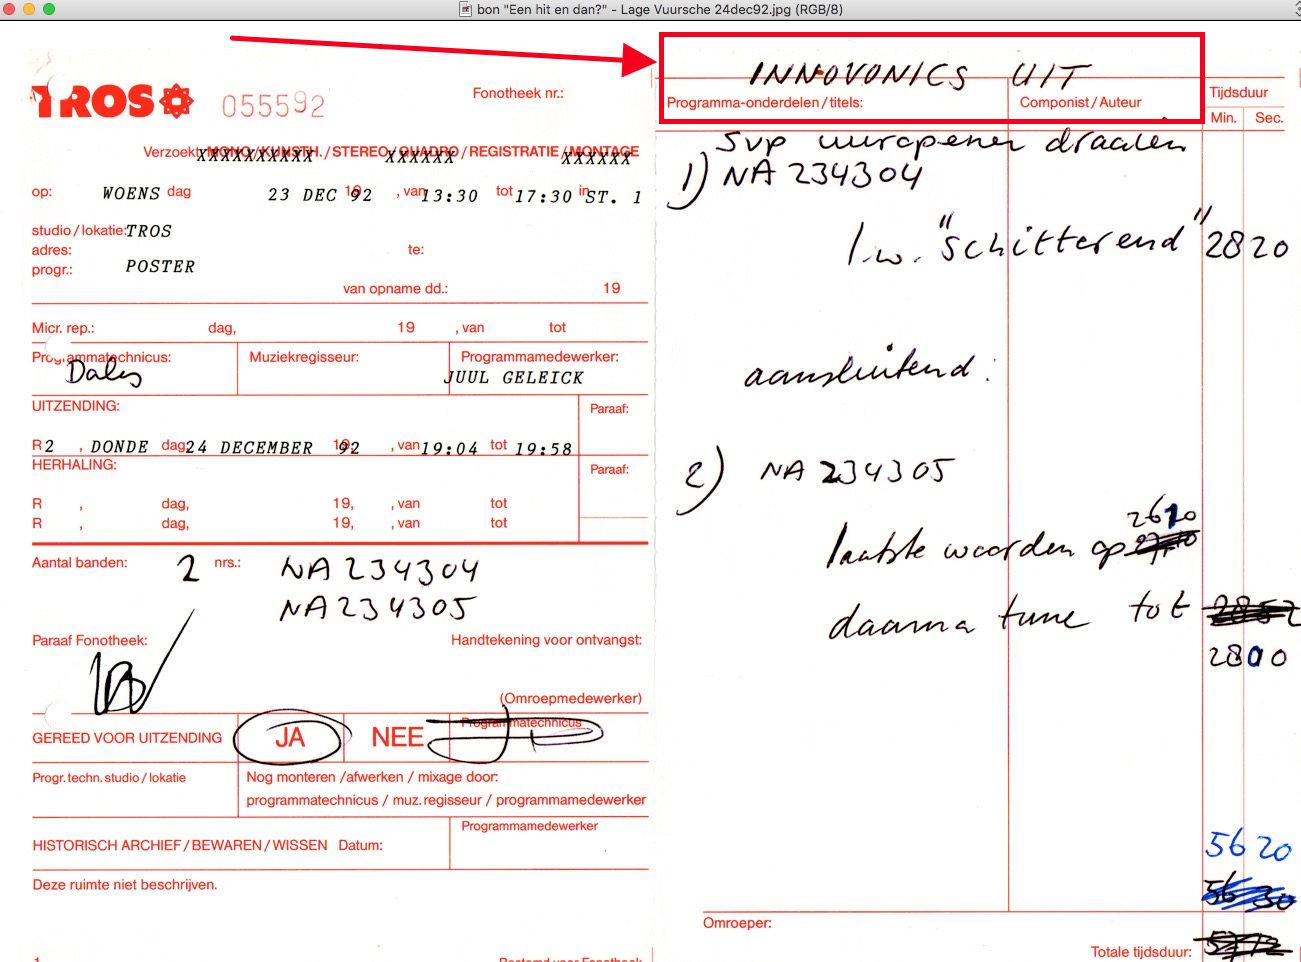 bon "Een hit en dan?" - Lage Vuursche 24dec92.jpg (RGB/8)
TROS 055592
Fonotheek nr.:
Verzoek: MONO/KUNSTH./STEREO/QUADRO/REGISTRATIE/MONTAGE
op: WOENS dag 23 DEC 1992, van 13:30 tot 17:30 in ST. 1
studio/lokatie: TROS
adres: te:
progr.: POSTER
van opname dd.: 19
Micr. rep.: dag, 19 , van tot
Programmatechnicus: Muziekregisseur: Programmamedewerker:
JUUL GELEICK
UITZENDING: Paraaf:
R 2 , DONDE dag, 24 DECEMBER 19, 92 , van 19:04 tot 19:58
HERHALING: Paraaf:
R , dag, 19, , van tot
R , dag, 19, , van tot
Aantal banden: 2 nrs.: NA 234304
NA 234305
Paraaf Fonotheek: Handtekening voor ontvangst:
(Omroepmedewerker)
GEREED VOOR UITZENDING JA NEE Programmatechnicus
Progr. techn. studio/lokatie Nog monteren/afwerken/mixage door:
programmatechnicus/muz. regisseur/programmamedewerker
Programmamedewerker
HISTORISCH ARCHIEF/BEWAREN/WISSEN Datum:
Deze ruimte niet beschrijven.
1 Bestemd voor Fonotheek
INNOVONICS UIT
Programma-onderdelen/titels: Componist/Auteur Tijdsduur
Min. Sec.
Svp draaien
1) NA 234304
l.w. "schitterend" 2820
aansluitend:
2) NA 234305
2620
laatste woorden op
daarna tune tot
2800
5620
5630
Omroeper:
Totale tijdsduur: